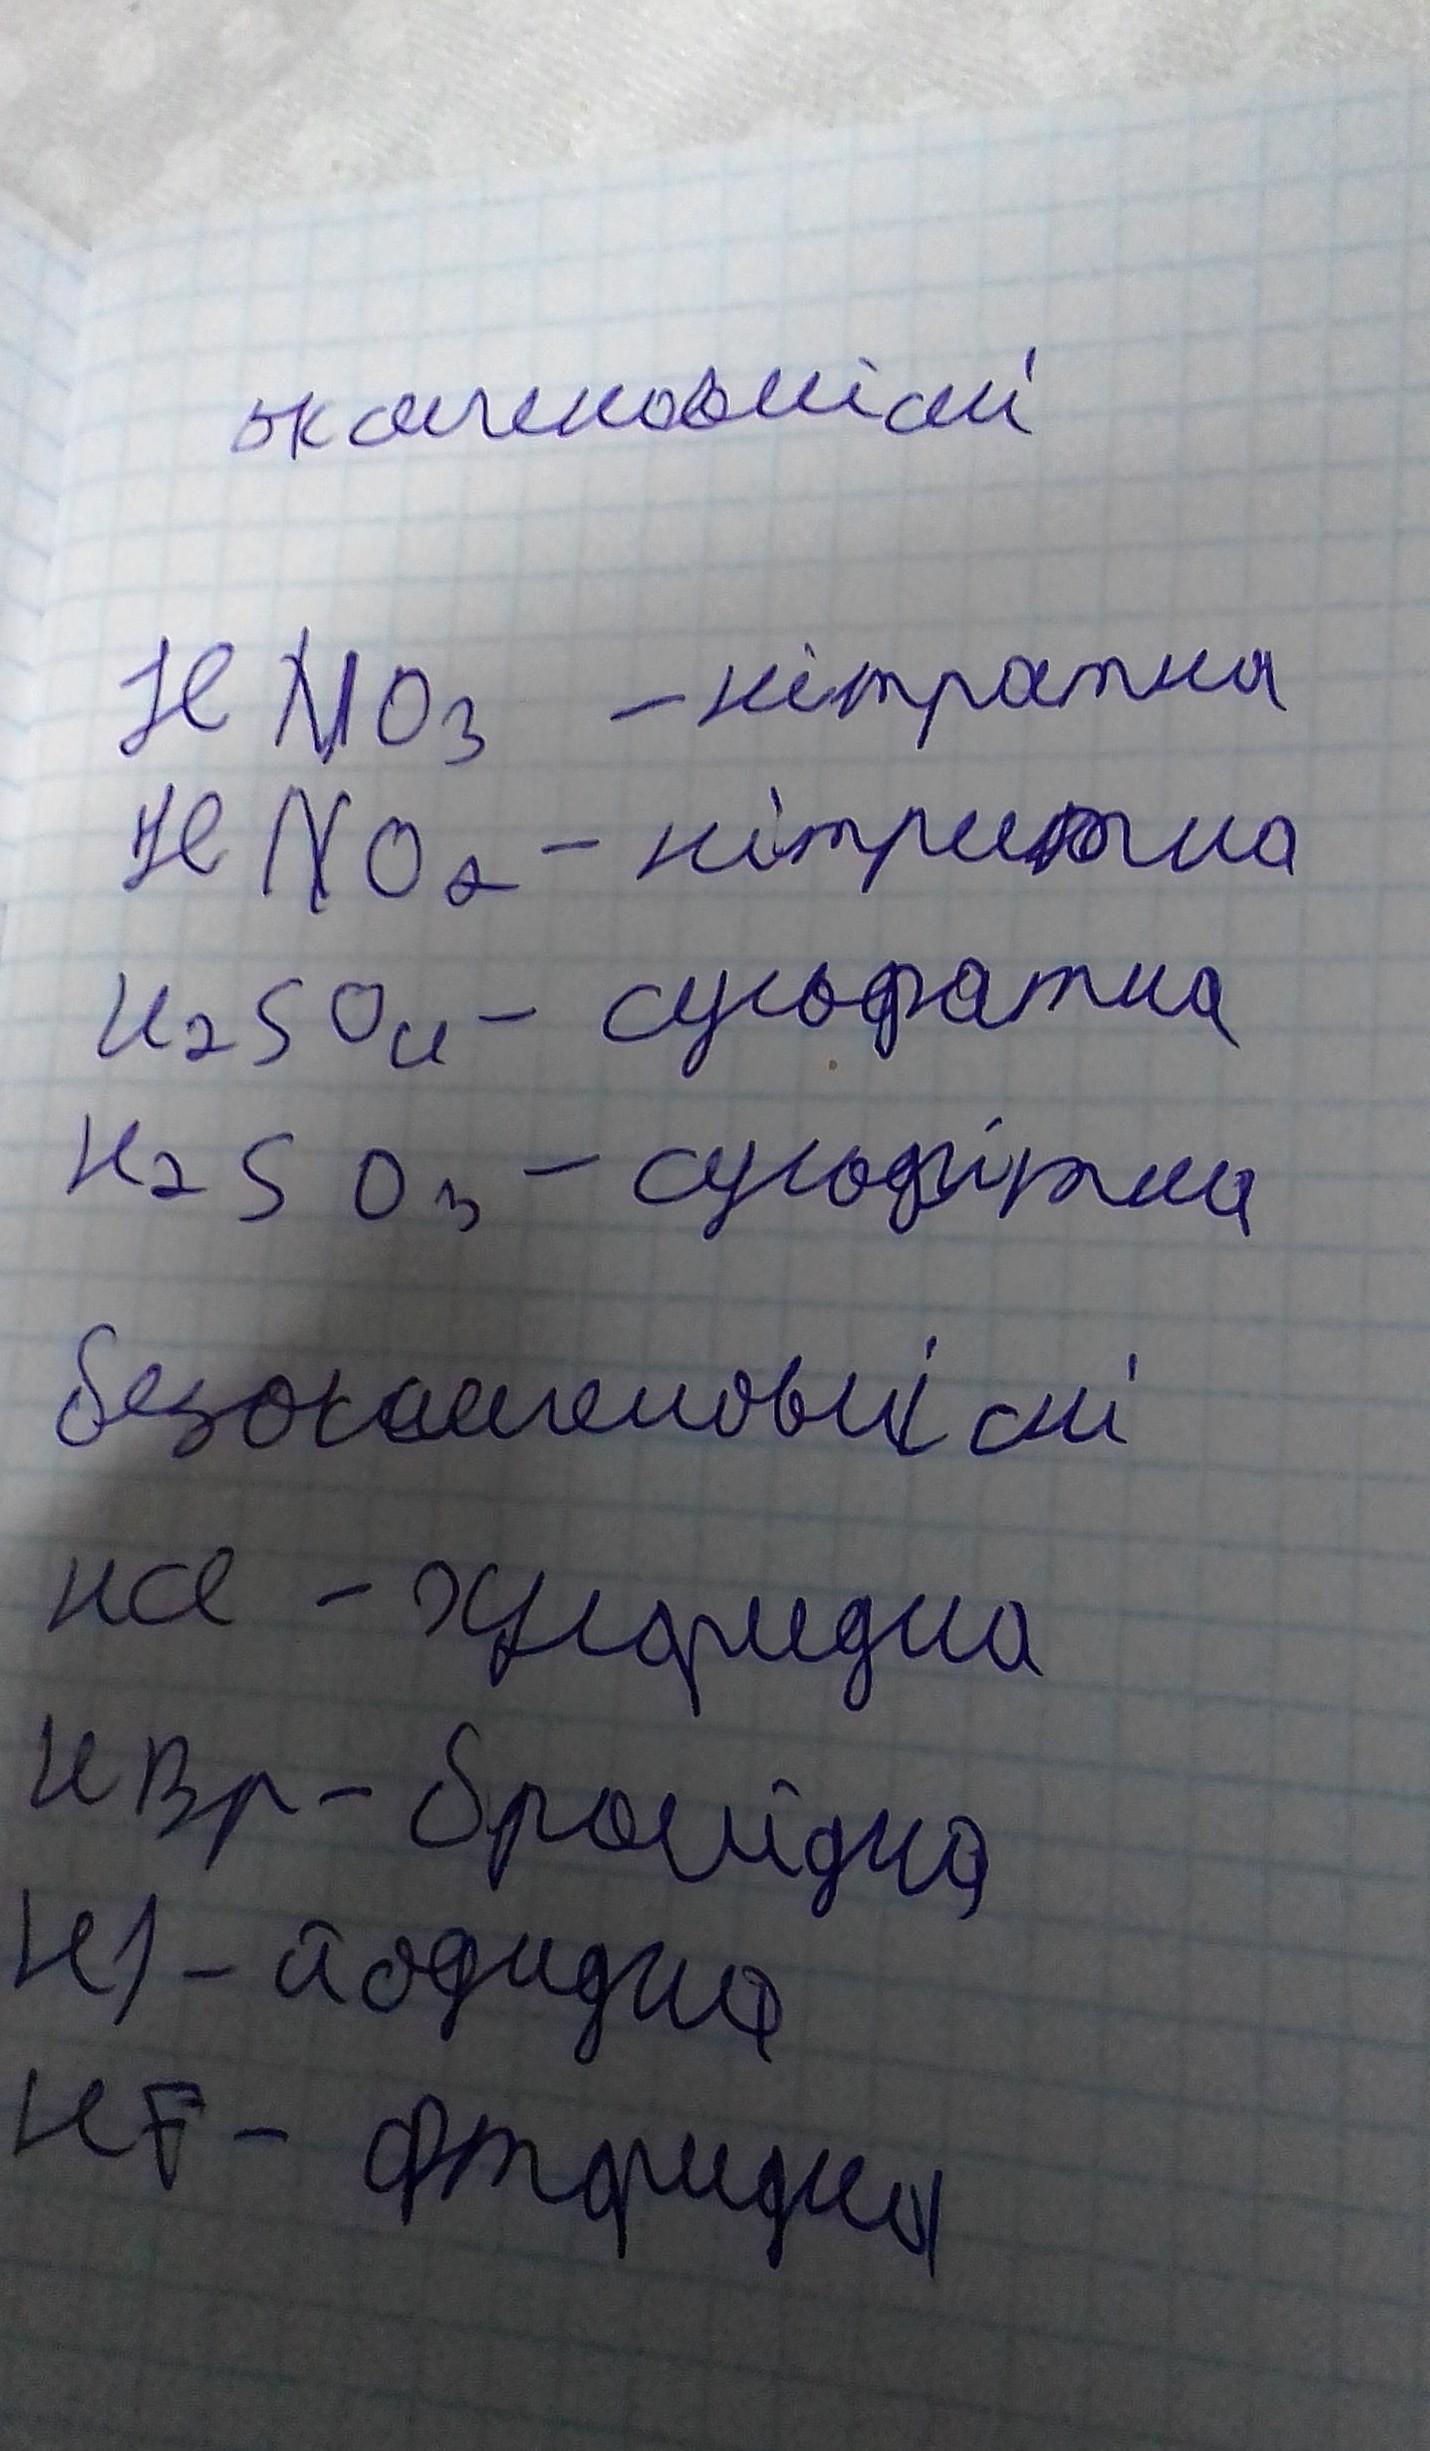 оксигеновмісні
HNO3 - нітратна
HNO2 - нітритна
H2SO4 - сульфатна
H2SO3 - сульфітна
безоксигеновмісні
HCl - хлоридна
HBr - бромідна
HI - йодидна
HF - фторидна